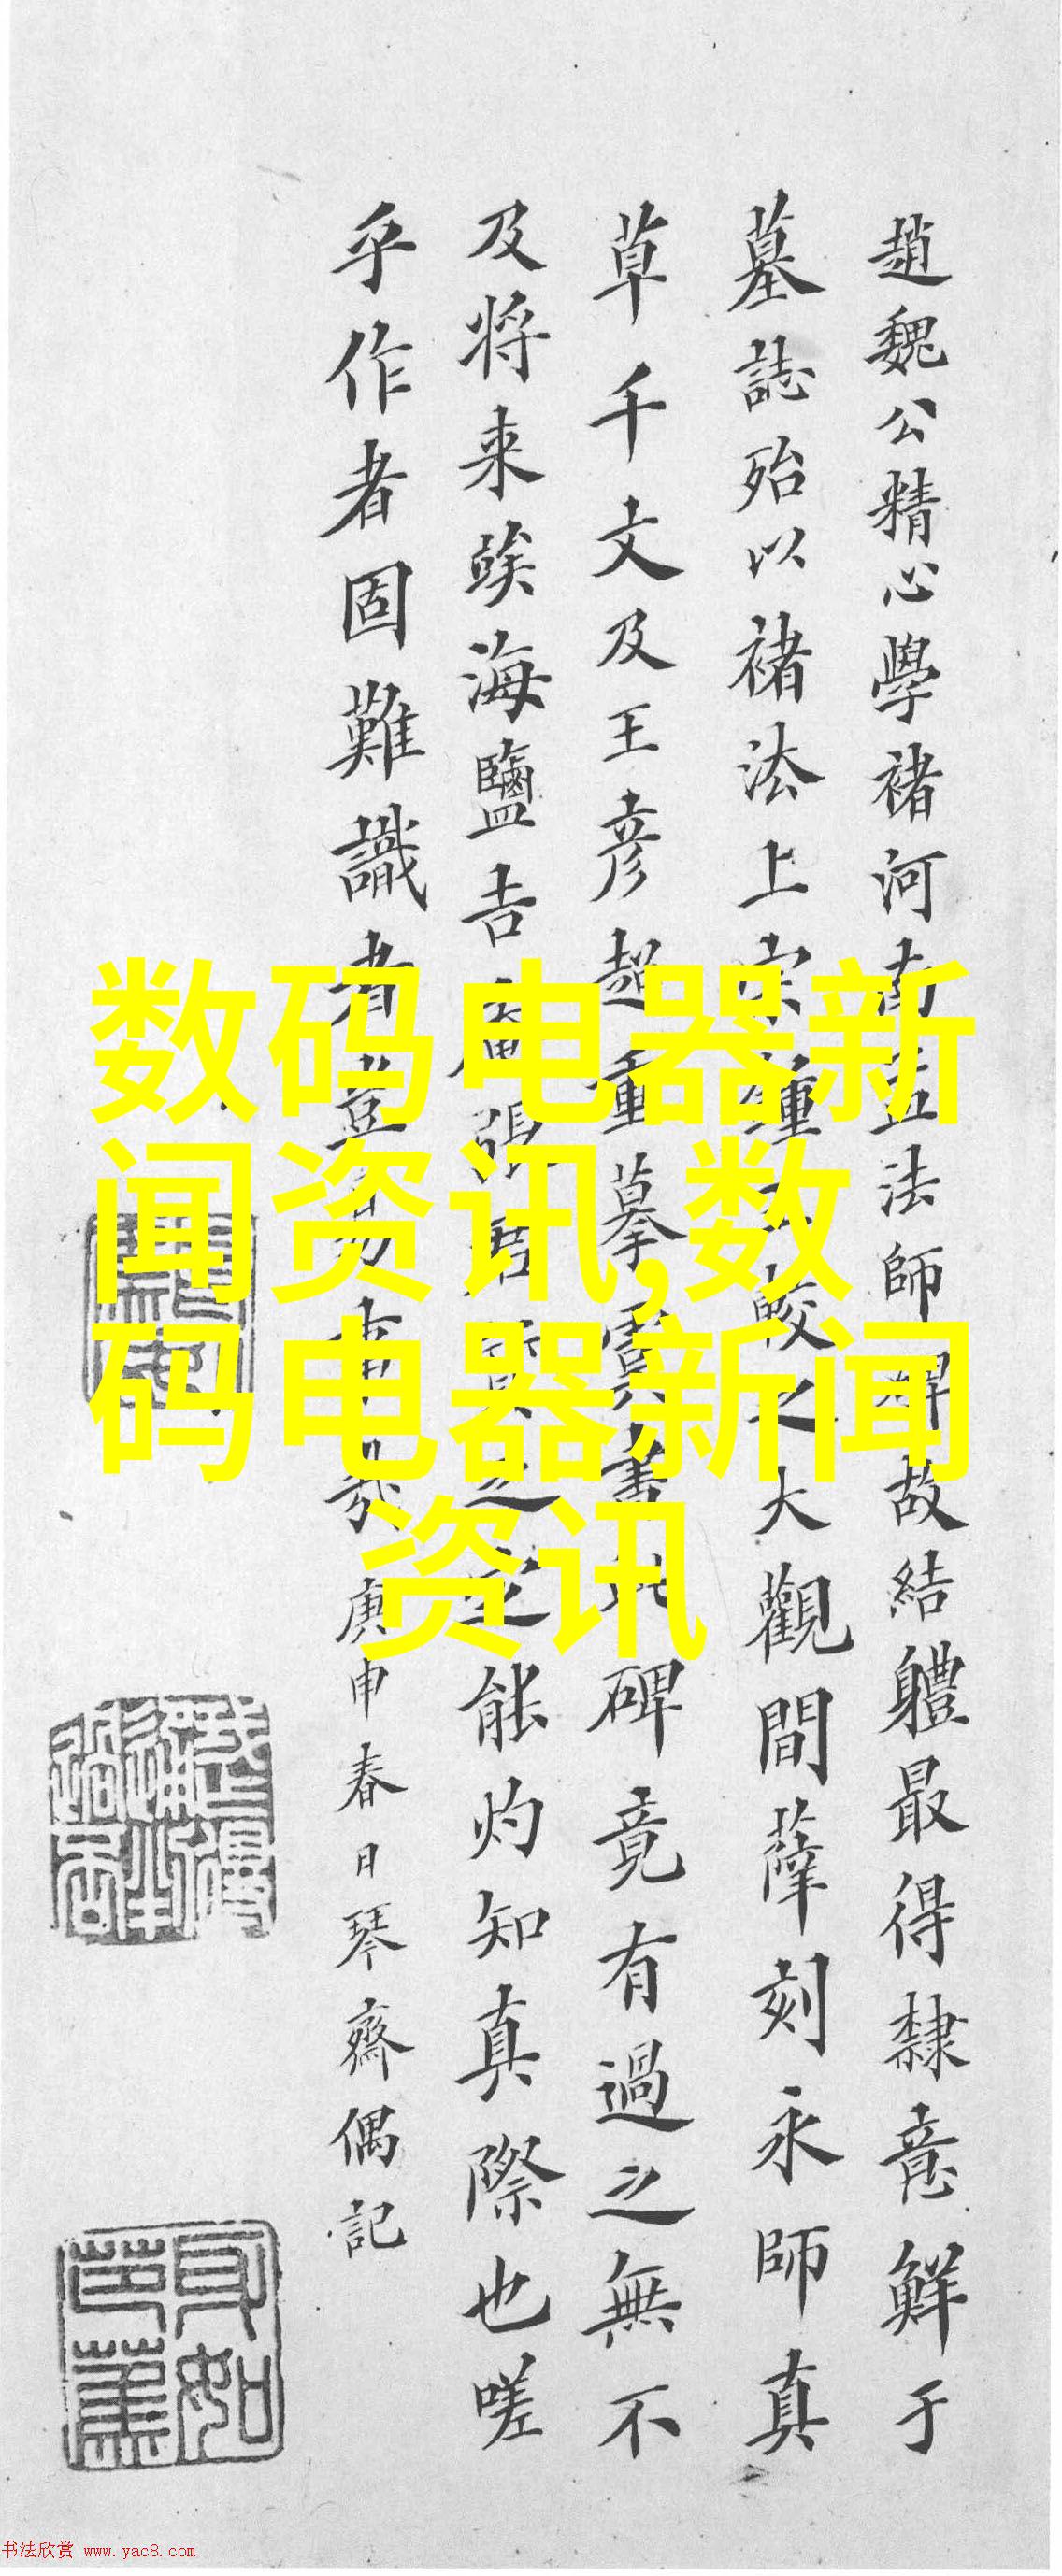 趙魏公精心學褚河南孟法師碑故結軆最得隸意鮮于
墓誌殆以褚法上宗鍾較之大觀間薛刻永師真
草千文及王彦超重摹虞書此碑竟有過之無不
及将来竢海鹽吉張君之能灼知真際也嗟
乎作者固難識者豈易哉庚申春日琴齋偶記
数码电器新
闻资讯,数
码电器新闻
资讯
书法欣赏 www.yac8.com